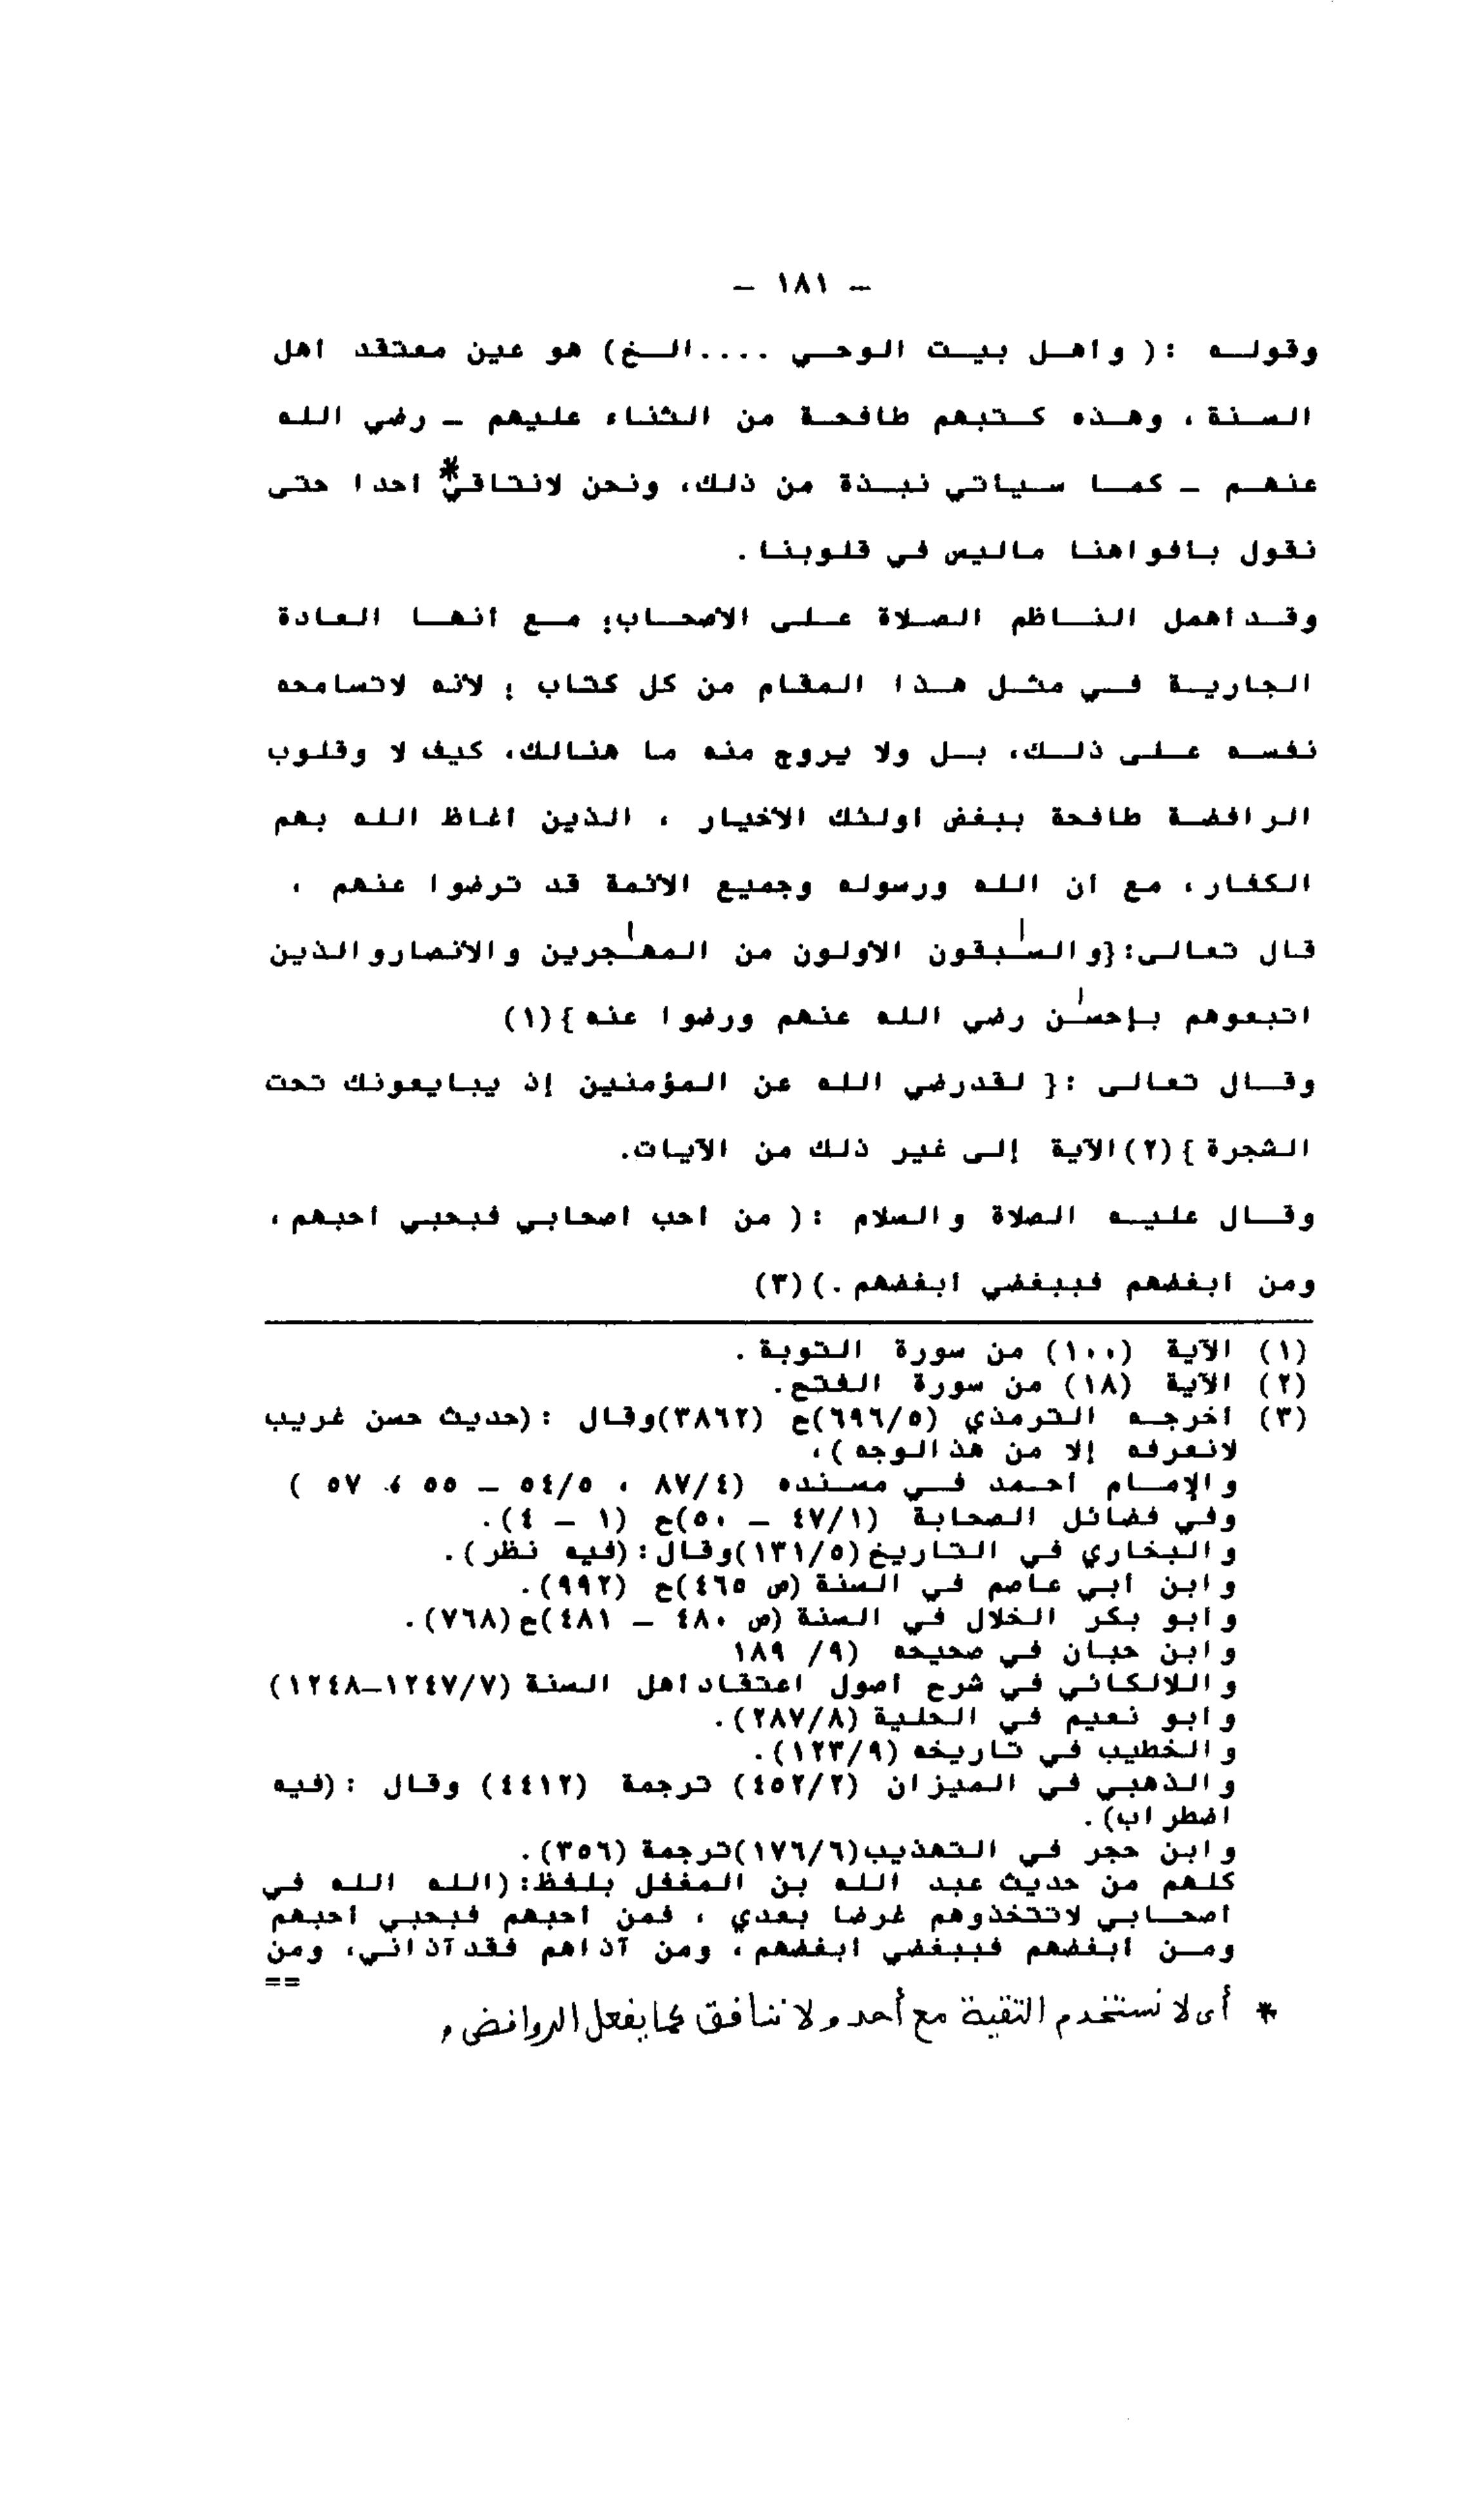 - ١٨١ -
وقوله : ( وأهل بيت الوحي ....الخ) هو عين معتقد أهل
السنة ، وهذه كتبهم طافحة من الثناء عليهم - رضي الله
عنهم - كما سيأتي نبذة من ذلك، ونحن لانتاقي* أحدا حتى
نقول بأفواهنا ماليس في قلوبنا .
وقد أهمل الناظم الصلاة على الأصحاب؛ مع أنها العادة
الجارية في مثل هذا المقام من كل كتاب ؛ لأنه لاتسامحه
نفسه على ذلك، بل ولا يروج منه ما هنالك، كيف لا وقلوب
الرافضة طافحة ببغض اولئك الأخيار ، الذين أغاظ الله بهم
الكفار ، مع أن الله ورسوله وجميع الأئمة قد ترضوا عنهم ،
قال تعالى:{والسٰبقون الأولون من المهٰجرين والأنصاروالذين
اتبعوهم بإحسٰن رضي الله عنهم ورضوا عنه }(١)
وقال تعالى :{ لقدرضي الله عن المؤمنين إذ يبايعونك تحت
الشجرة }(٢)الآية إلى غير ذلك من الآيات.
وقال عليه الصلاة والسلام : ( من احب اصحابي فبحبي احبهم ،
ومن ابغضهم فببغضي أبغضهم .) (٣)
(١) الآية (١٠٠) من سورة التوبة .
(٢) الآية (١٨) من سورة الفتح.
(٣) أخرجه الترمذي (٦٩٦/٥)ح (٣٨٦٢)وقال : (حديث حسن غريب
لانعرفه إلا من هذ الوجه )،
والإمام أحمد في مسنده (٨٧/٤ ، ٥٤/٥ - ٥٥ ، ٥٧ )
وفي فضائل الصحابة (٤٧/١ - ٥٠)ح (١ - ٤).
والبخاري في التاريخ(١٣١/٥)وقال: (فيه نظر).
وابن أبي عاصم في السنة (ص ٤٦٥)ح (٩٩٢).
وأبو بكر الخلال في السنة (ص ٤٨٠ - ٤٨١)ح(٧٦٨).
وابن حبان في صحيحه (٩/ ١٨٩
واللالكائي في شرح أصول اعتقادأهل السنة (١٢٤٧/٧-١٢٤٨)
وأبو نعيم في الحلية (٢٨٧/٨).
والخطيب في تاريخه (١٢٣/٩).
والذهبي في الميزان (٤٥٢/٢) ترجمة (٤٤١٢) وقال : (فيه
اضطراب).
وابن حجر في التهذيب(١٧٦/٦)ترجمة (٣٥٦).
كلهم من حديث عبد الله بن المغفل بلفظ: (الله الله في
أصحابي لاتتخذوهم غرضا بعدي ، فمن أحبهم فبحبي أحبهم
ومن أبغضهم فببغضي أبغضهم ، ومن آذاهم فقدآذاني، ومن
==
* أى لا نستخدم التقية مع أحد ولا ننافق كما يفعل الروافض .